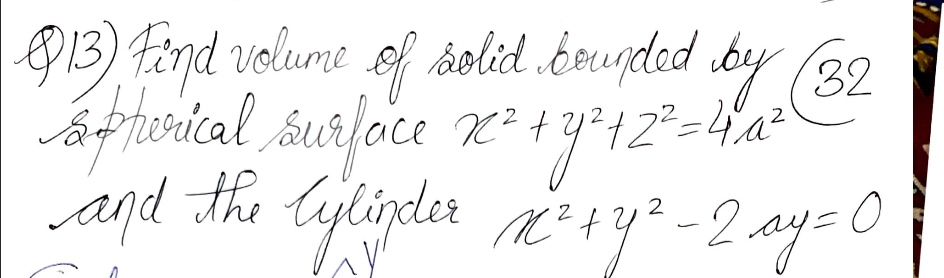 Q13) Find volume of solid bounded by (32
spherical surface x²+y²+z²=4a²
and the Cylinder x²+y²-2ay=0
y